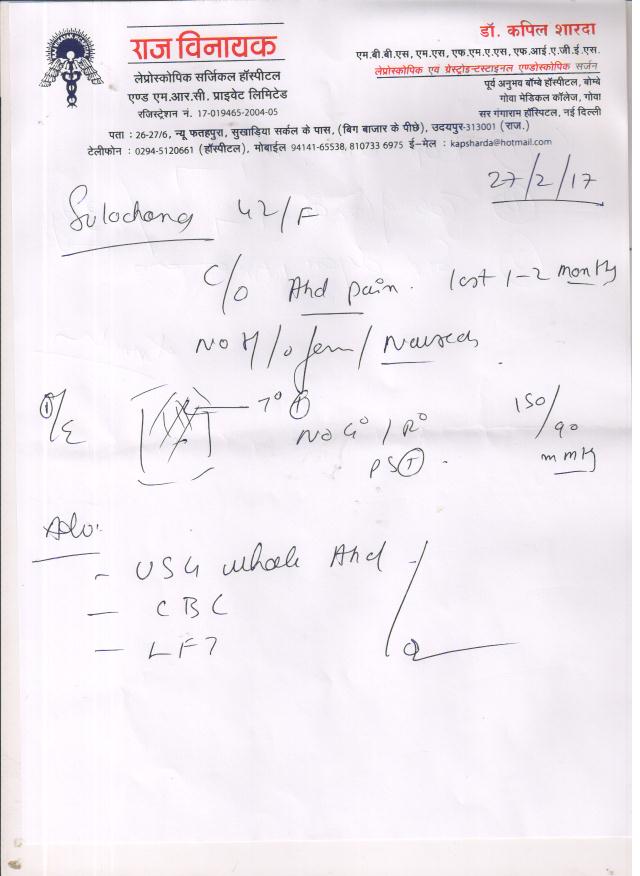 राज विनायक
लेप्रोस्कोपिक सर्जिकल हॉस्पीटल
एण्ड एम.आर.सी. प्राइवेट लिमिटेड
रजिस्ट्रेशन नं. 17-019465-2004-05
डॉ. कपिल शारदा
एम.बी.बी.एस, एम.एस, एफ.एम.ए.एस, एफ.आई.ए.जी.ई.एस.
लेप्रोस्कोपिक एवं ग्रेस्ट्रोइन्टस्टाइनल एण्डोस्कोपिक सर्जन
पूर्व अनुभव बॉम्बे हॉस्पीटल, बोम्बे
गोवा मेडिकल कॉलेज, गोवा
सर गंगाराम हॉस्पिटल, नई दिल्ली
पता : 26-27/6, न्यू फतहपुरा, सुखाड़िया सर्कल के पास, (बिग बाजार के पीछे), उदयपुर-313001 (राज.)
टेलीफोन : 0294-5120661 (हॉस्पीटल), मोबाईल 94141-65538, 810733 6975 ई-मेल : kapsharda@hotmail.com
27/2/17
Sulochana 42/F
C/O Abd pain. last 1-2 month
No H/o fever/Nausea
O/E T° (+) No G°/R° 150/90
PS mmHg
Adv.
- USG whole Abd
- CBC
- LFT